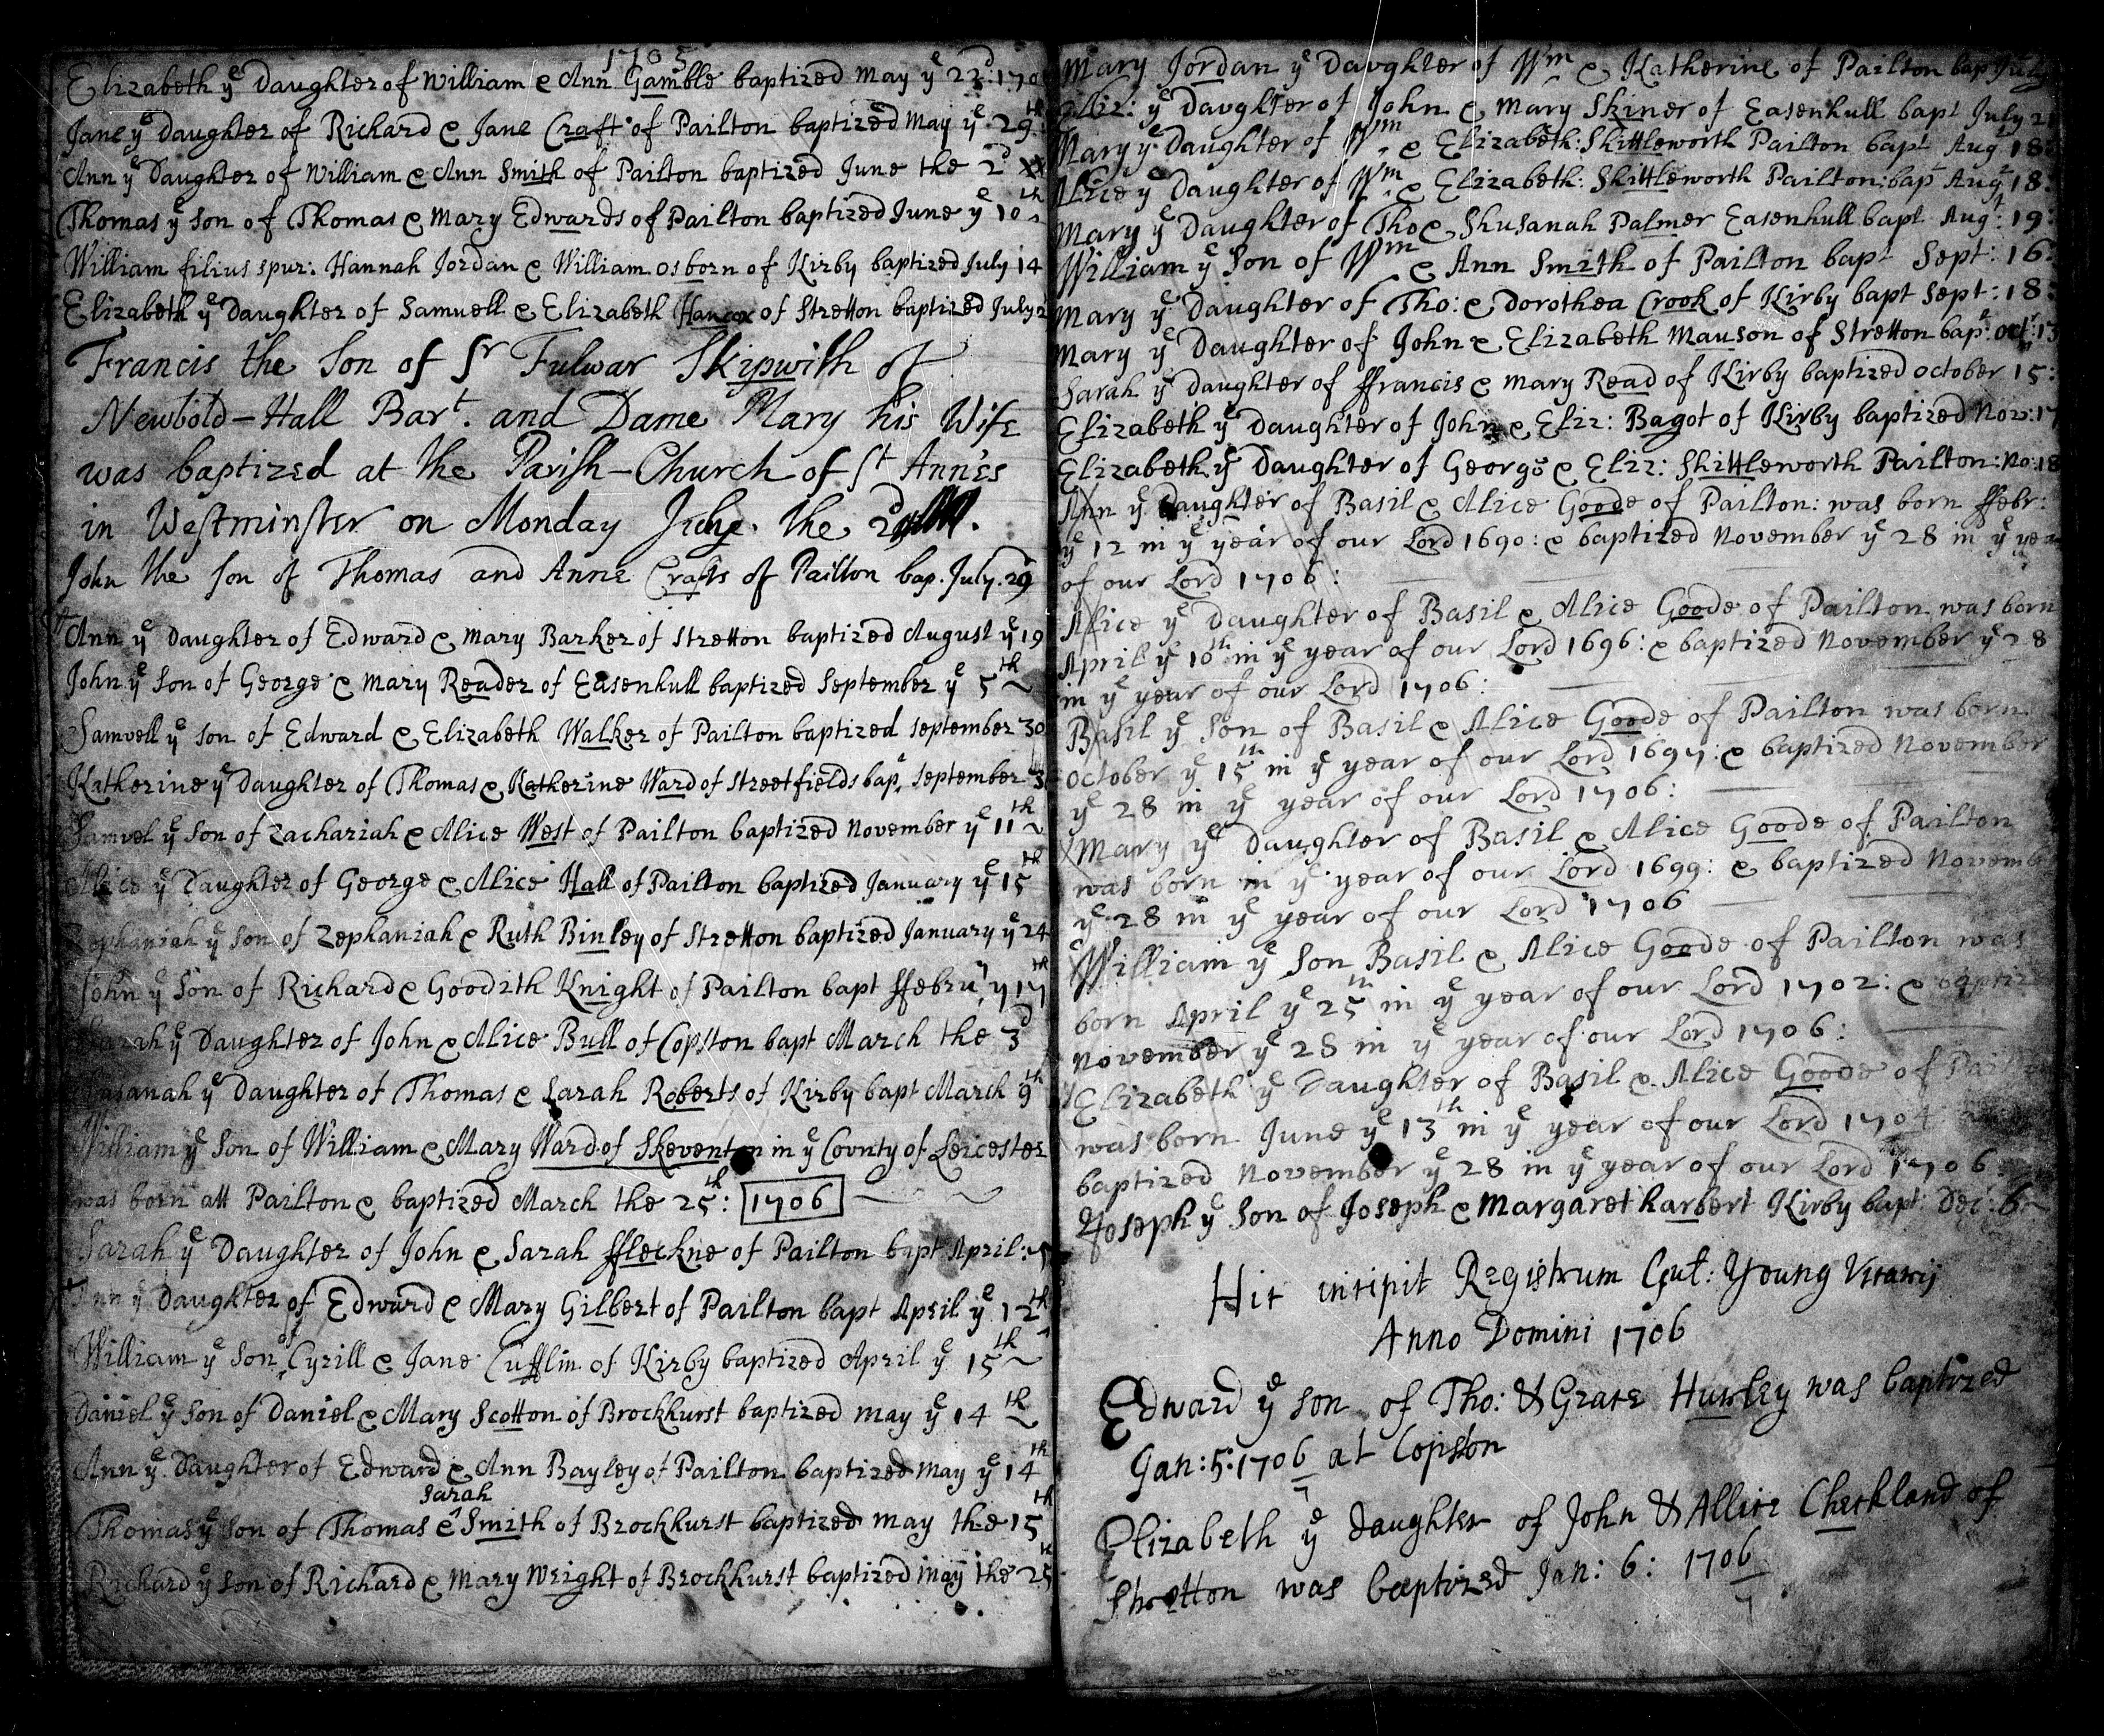 1705
Elizabeth yᵉ Daughter of William & Ann Gamble baptized May yᵉ 22ᵈ: 170
Jane yᵉ Daughter of Richard & Jane Craft of Pailton baptized May yᵉ 29ᵗʰ
Ann yᵉ Daughter of William & Ann Smith of Pailton baptized June the 2ᵈ
Thomas yᵉ Son of Thomas & Mary Edwards of Pailton baptized June yᵉ 10ᵗʰ
William filius spur: Hannah Jordan & William osborn of Kirby baptized July 14
Elizabeth yᵉ Daughter of Samuell & Elizabeth Hancox of Stretton baptized July 2
Francis the Son of Sʳ Fulwar Skipwith of
Newbold-Hall Barᵗ. and Dame Mary his Wife
was baptized at the Parish-Church of Sᵗ Ann'es
in Westminster on Monday the 2
John the Son of Thomas and Anne Crafts of Pailton bap. July. 29
Ann yᵉ Daughter of Edward & Mary Barker of Stretton baptized August yᵉ 19
John yᵉ Son of George & Mary Reader of Easenhull baptized September yᵉ 5ᵗʰ
Samvell yᵉ Son of Edward & Elizabeth Walker of Pailton baptized september 30
Katherine yᵉ Daughter of Thomas & Katherine Ward of streetfields bapᵗ. september 3
Samvel yᵉ Son of Zachariah & Alice West of Pailton baptized November yᵉ 11ᵗʰ
Alice yᵉ Daughter of George & Alice Hall of Pailton baptized January yᵉ 15ᵗʰ
Zephaniah yᵉ Son of Zephaniah & Ruth Binley of Stretton baptized January yᵉ 24
John yᵉ Son of Richard & Goodith Knight of Pailton bapt ffebruʸ yᵉ 17ᵗʰ
Sharah yᵉ Daughter of John & Alice Bull of Copston bapt March the 3ᵈ
yᵉ Daughter of Thomas & Sarah Roberts of Kirby bapt March 9ᵗʰ
William yᵉ Son of William & Mary Ward of Skeventon in yᵉ County of Leicester
was born att Pailton & baptized March the 25ᵗʰ: 1706
Sarah yᵉ Daughter of John & Sarah ffleckne of Pailton bapt April: 5
Ann yᵉ Daughter of Edward & Mary Gilbert of Pailton bapt April yᵉ 12ᵗʰ
William yᵉ Son of Cyrill & Jane Cufflin of Kirby baptized April yᵉ 15ᵗʰ
Daniel yᵉ Son of Daniel & Mary Scotton of Brockhurst baptized may yᵉ 14ᵗʰ
Ann yᵉ Daughter of Edward & Ann Bayley of Pailton baptized may yᵉ 14ᵗʰ
Thomas yᵉ Son of Thomas & Sarah Smith of Brockhurst baptized may the 15ᵗʰ
Richard yᵉ Son of Richard & Mary Wright of Brockhurst baptized may the 25ᵗʰ
Mary Jordan yᵉ Davghter of Wᵐ & Katherine of Pailton bap July
Eliz: yᵉ Davghter of John & Mary Skiner of Easenhull bapt July 21
Mary yᵉ Daughter of Wᵐ & Elizabeth: Shittleworth Pailton bapt Augᵗ 18:
Alice yᵉ Daughter of Wᵐ & Elizabeth: Shittleworth Pailton: bapᵗ Augᵗ 18:
Mary yᵉ Daughter of Tho & Shusanah Palmer Easenhull bapt Augᵗ: 19:
William yᵉ Son of Wᵐ & Ann Smith of Pailton bapt Sept: 16:
Mary yᵉ Daughter of Tho: & Dorothea Crook of Kirby bapt Sept: 18:
Mary yᵉ Daughter of John & Elizabeth Mauson of Stretton bapᵗ: octʳ: 13
Sarah yᵉ Daughter of ffrancis & Mary Read of Kirby baptized october 15:
Elizabeth yᵉ Daughter of John & Eliz: Bagot of Kirby baptized Nov: 17
Elizabeth yᵉ Daughter of George & Eliz: Shittleworth Pailton: No: 18
Ann yᵉ Daughter of Basil & Alice Goode of Pailton: was born ffebr:
yᵉ 12 in yᵉ year of our Lord 1690: & baptized November yᵉ 28 in yᵉ yea
of our Lord 1706:
Alice yᵉ Daughter of Basil & Alice Goode of Pailton was born
April yᵉ 10ᵗʰ in yᵉ year of our Lord 1696: & baptized November yᵉ 28
in yᵉ year of our Lord 1706:
Basil yᵉ Son of Basil & Alice Goode of Pailton was born
October yᵉ 15ᵗʰ in yᵉ year of our Lord 1697: & baptized November
yᵉ 28 in yᵉ year of our Lord 1706:
Mary yᵉ Daughter of Basil & Alice Goode of Pailton
was born in yᵉ year of our Lord 1699: & baptized Novemb
yᵉ 28 in yᵉ year of our Lord 1706
William yᵉ Son Basil & Alice Goode of Pailton was
born April yᵉ 25ᵗʰ in yᵉ year of our Lord 1702: & baptiz
November yᵉ 28 in yᵉ year of our Lord 1706:
Elizabeth yᵉ Daughter of Basil & Alice Goode of Pailton
was born June yᵉ 13ᵗʰ in yᵉ year of our Lord 1704
baptized November yᵉ 28 in yᵉ year of our Lord 1706
Joseph yᵉ Son of Joseph & Margaret harbert Kirby bapt Dec: 6
Hic incipit Registrum Gul: Young Vicarij
Anno Domini 1706
Edward yᵉ son of Tho: & Grace Hunley was baptized
Jan: 5: 1706/7 at Copston
Elizabeth yᵉ daughter of John & Allice Checkland of
Stretton was baptized Jan: 6: 1706/7